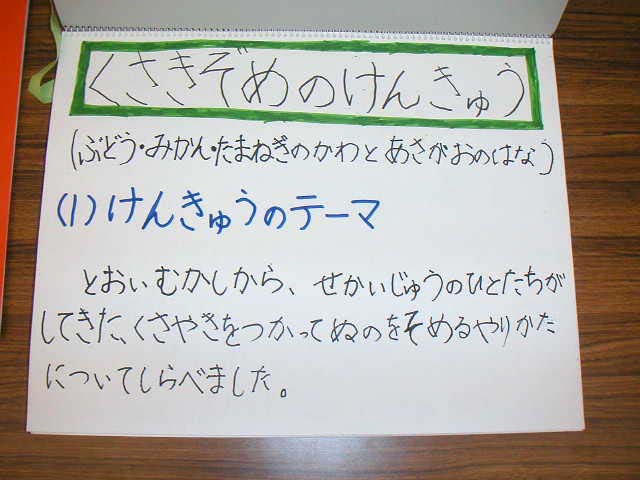 くさきぞめのけんきゅう
(ぶどう・みかん・たまねぎのかわとあさがおのはな)
(1)けんきゅうのテーマ
とおいむかしから、せかいじゅうのひとたちが
してきた、くさやきをつかってぬのをそめるやりかた
についてしらべました。